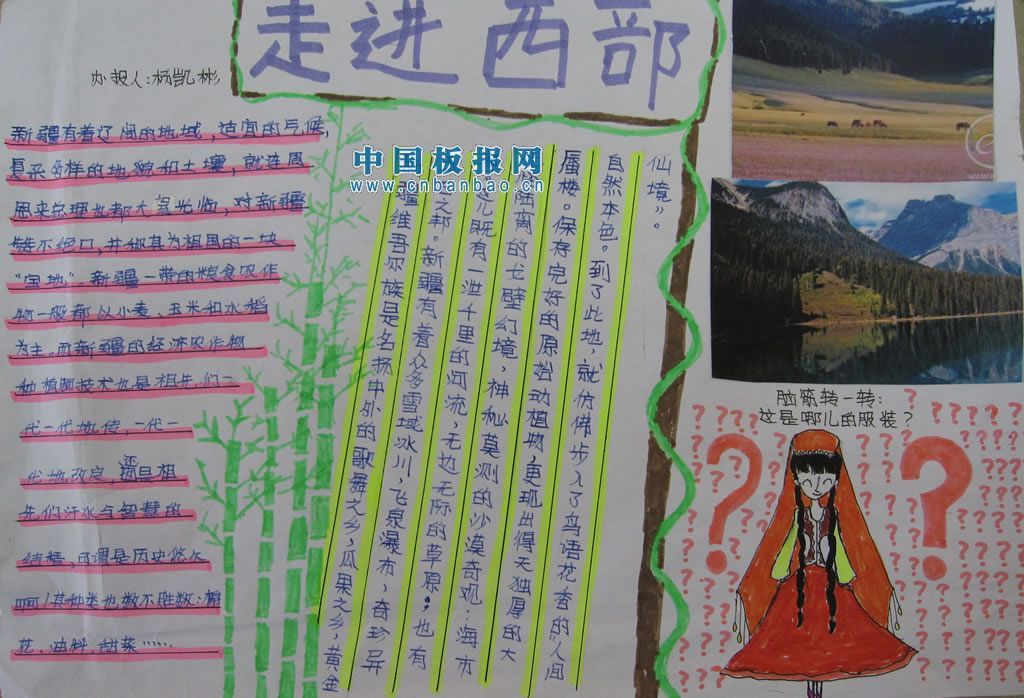 走进西部
办报人:杨凯彬
新疆有着辽阔的地域，适宜的气候，
复杂多样的地貌和土壤，就连周
恩来总理也都大驾光临，对新疆
赞不绝口，并称其为祖国的一块
“宝地”。新疆一带的粮食农作
物一般都以小麦、玉米和水稻
为主，而新疆的经济农作物
种植期技术也是祖先们一
代一代地传，一代一
代地改良，还是祖
先们汗水与智慧的
结精，可谓是历史悠久
啊！其种类也数不胜数：棉
花、油料、甜菜……
中国板报网
www.cnbanbao.cn
疆维吾尔族是名扬中外的歌舞之乡，瓜果之乡，黄金
之邦。新疆有着众多雪域冰川，飞泉瀑布，奇珍异
儿既有一泄千里的河流，无边无际的草原；也有
陆离的戈壁幻境，神秘莫测的沙漠奇观：海市
蜃楼。保存完好的原始动植物更现出得天独厚的大
自然本色。到了此地，就仿佛步入了鸟语花香的“人间
仙境”。
脑筋转一转：
这是哪儿的服装？